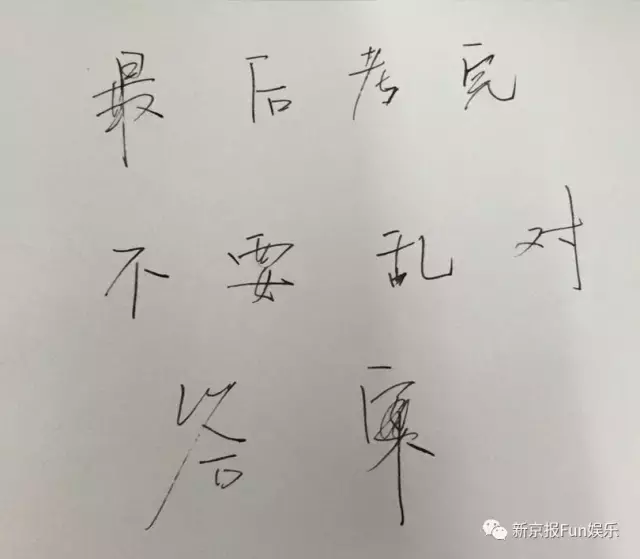 最后考完
不要乱对
答案
新京报Fun娱乐